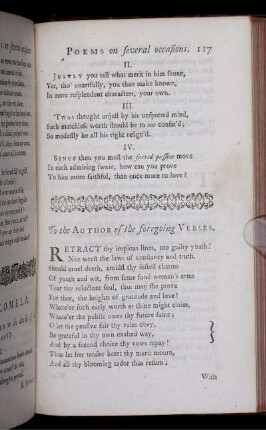 POEMS on several occasions. 117
II.
JUSTLY you tell what merit in him shone,
Yet, tho' unartfully, you thus make known,
In more resplendent characters, your own.
III.
'TWAS thought unjust by his unspotted mind,
Such matchless worth should be to me confin'd;
So modestly he all his right resign'd.
IV.
SINCE then you must the sacred passion move
In each admiring swain, how can you prove
To him more faithful, than once more to love?
To the AUTHOR of the foregoing VERSES.
RETRACT thy impious lines, too guilty youth!
Nor wrest the laws of constancy and truth.
Should cruel death, amidst thy softest charms
Of youth and wit, from some fond woman's arms
Tear thy reluctant soul, thus may she prove
For thee, the heights of gratitude and love!
Whate'er such early worth as thine might claim,
Whate'er the public owes thy future fame;
O let the pensive fair thy rules obey,
Be grateful in thy own exalted way,
And by a second choice thy vows repay!
Thus let her tender heart thy merit mourn,
And all thy blooming ardor thus return;
With